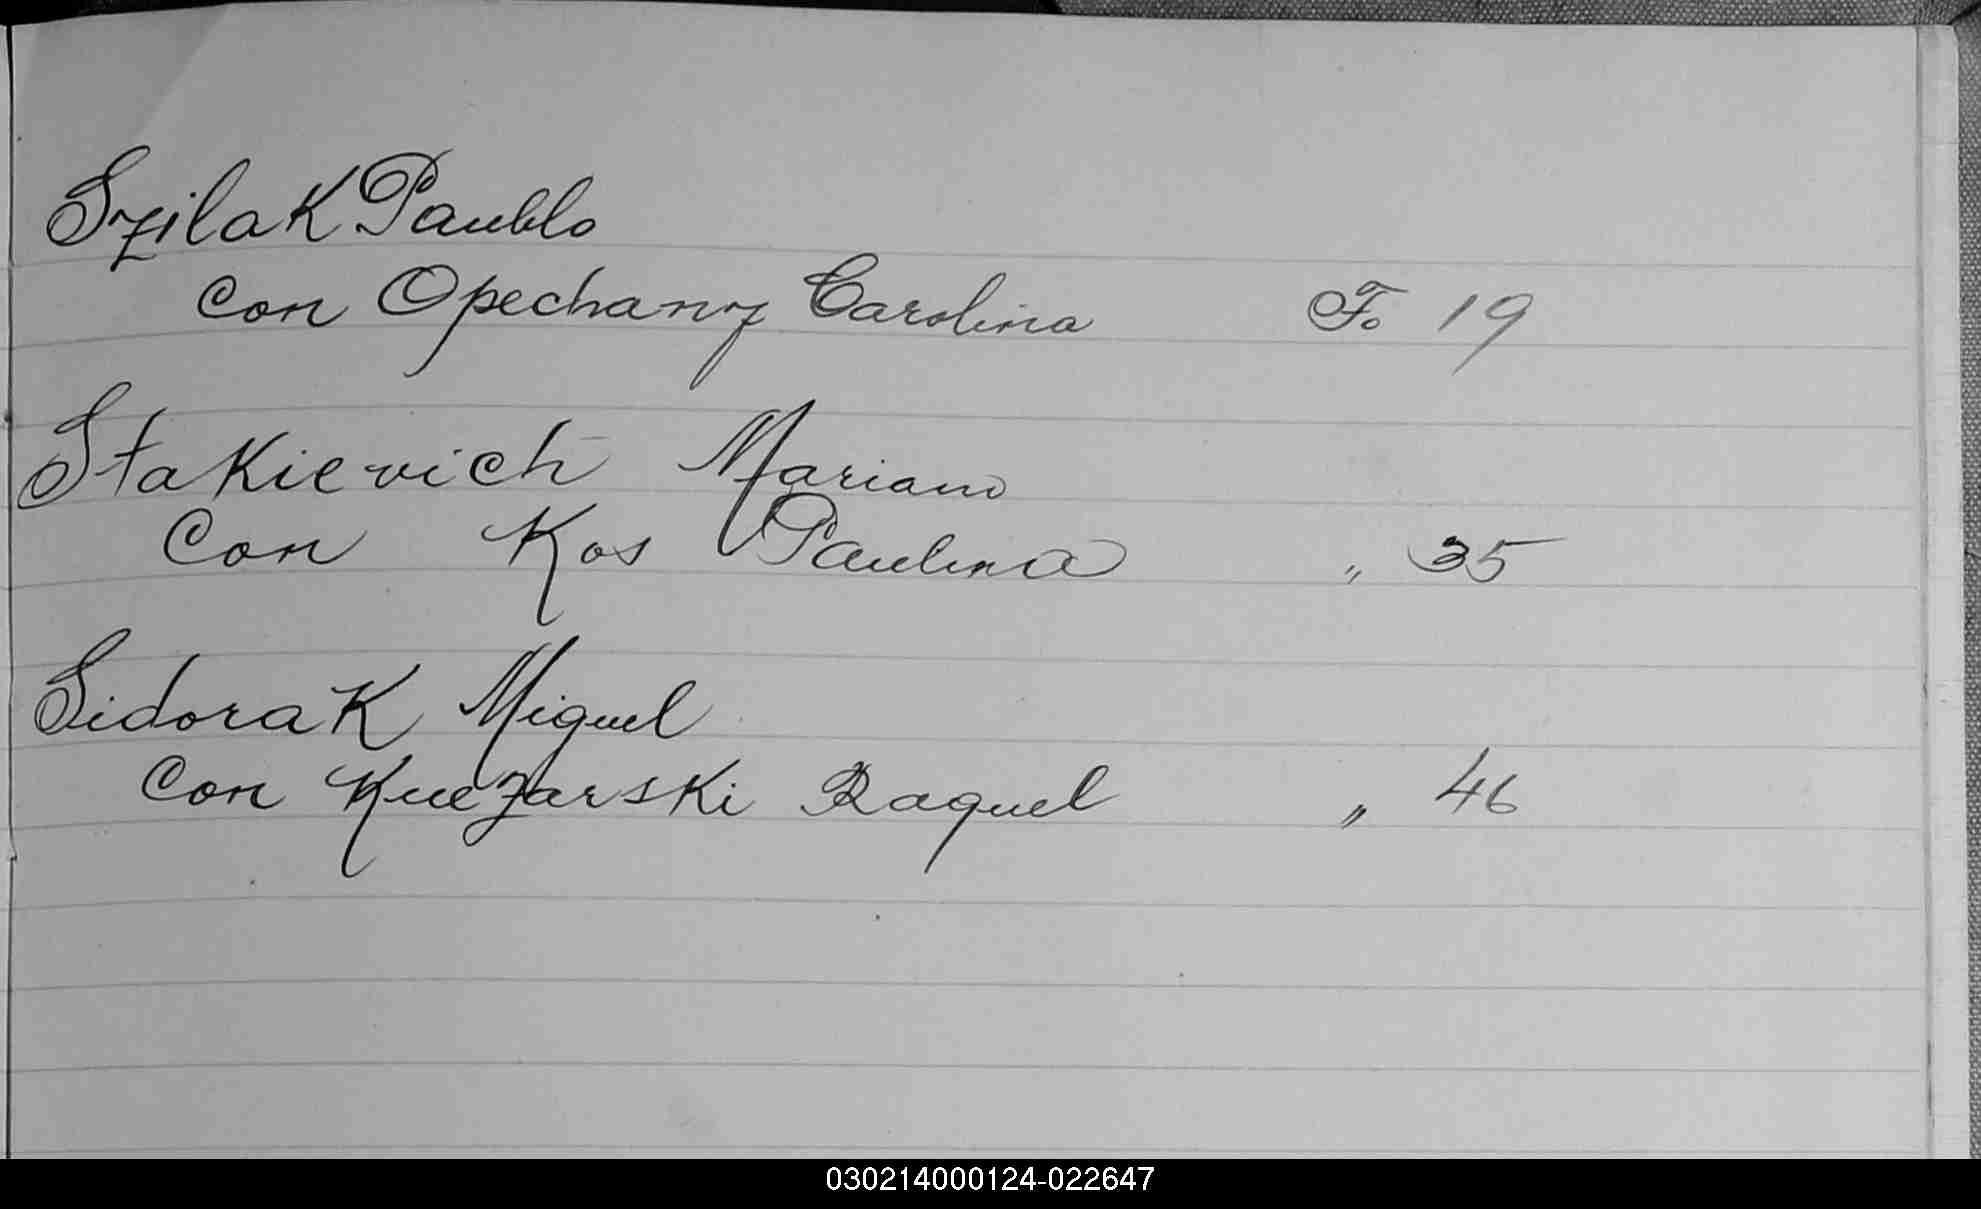 Szilak Paublo
Con Opechanz Carolina Fo 19
Stakievich Mariano
Con Kos Paulina " 35
Sidorak Miguel
Con Kuezarski Raquel " 46
030214000124-022647